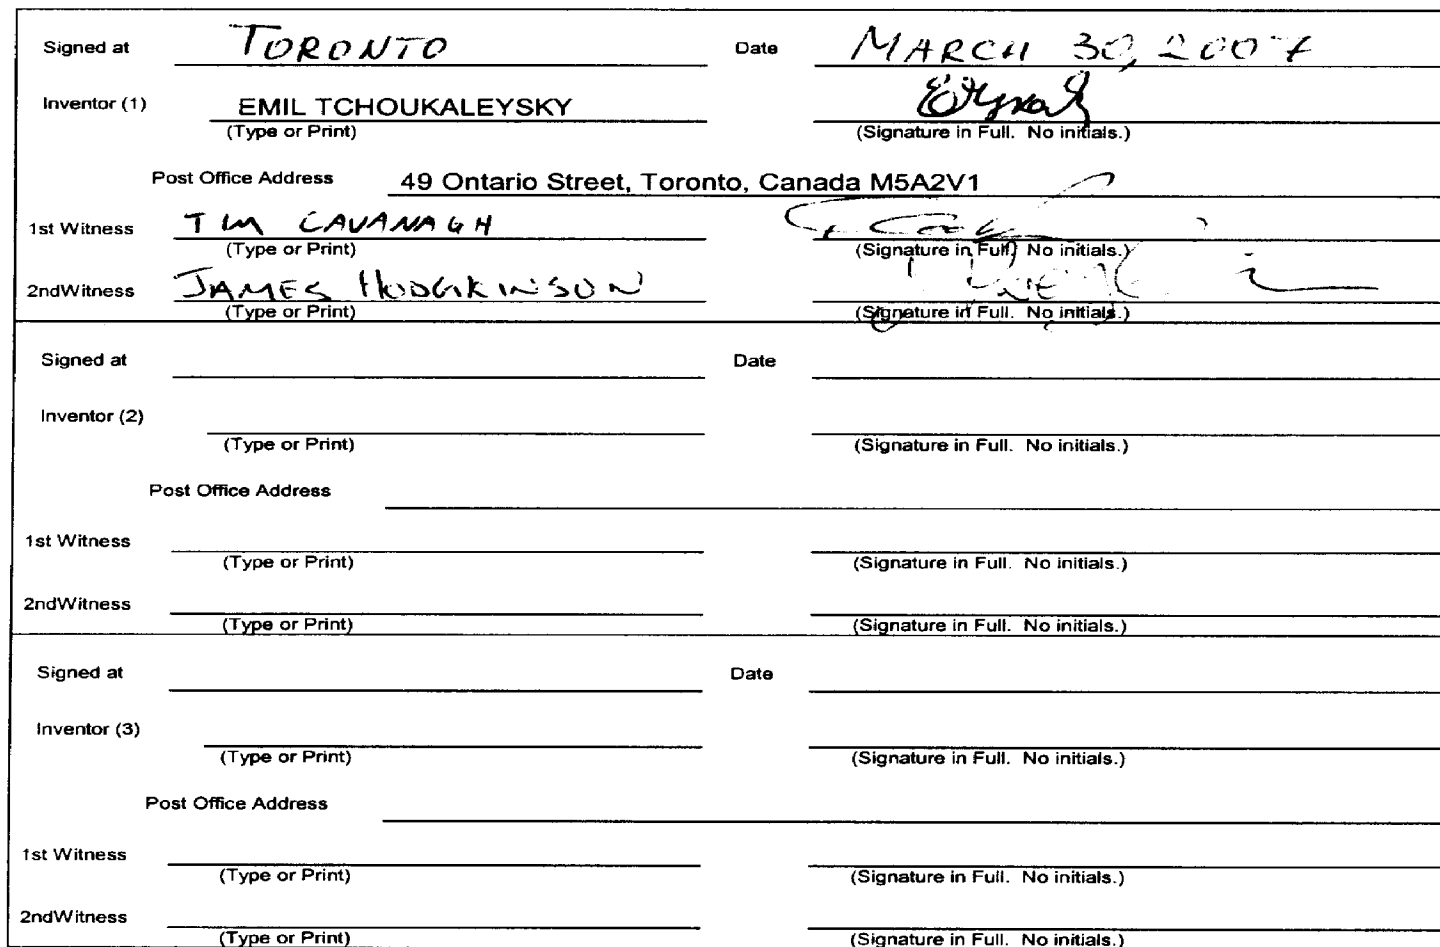 Signed at TORONTO Date MARCH 30, 2007
Inventor (1) EMIL TCHOUKALEYSKY
(Type or Print) (Signature in Full. No initials.)
Post Office Address 49 Ontario Street, Toronto, Canada M5A2V1
1st Witness TIM CAVANAGH
(Type or Print) (Signature in Full. No initials.)
2ndWitness JAMES HODGKINSON
(Type or Print) (Signature in Full. No initials.)
Signed at Date
Inventor (2)
(Type or Print) (Signature in Full. No initials.)
Post Office Address
1st Witness
(Type or Print) (Signature in Full. No initials.)
2ndWitness
(Type or Print) (Signature in Full. No initials.)
Signed at Date
Inventor (3)
(Type or Print) (Signature in Full. No initials.)
Post Office Address
1st Witness
(Type or Print) (Signature in Full. No initials.)
2ndWitness
(Type or Print) (Signature in Full. No initials.)